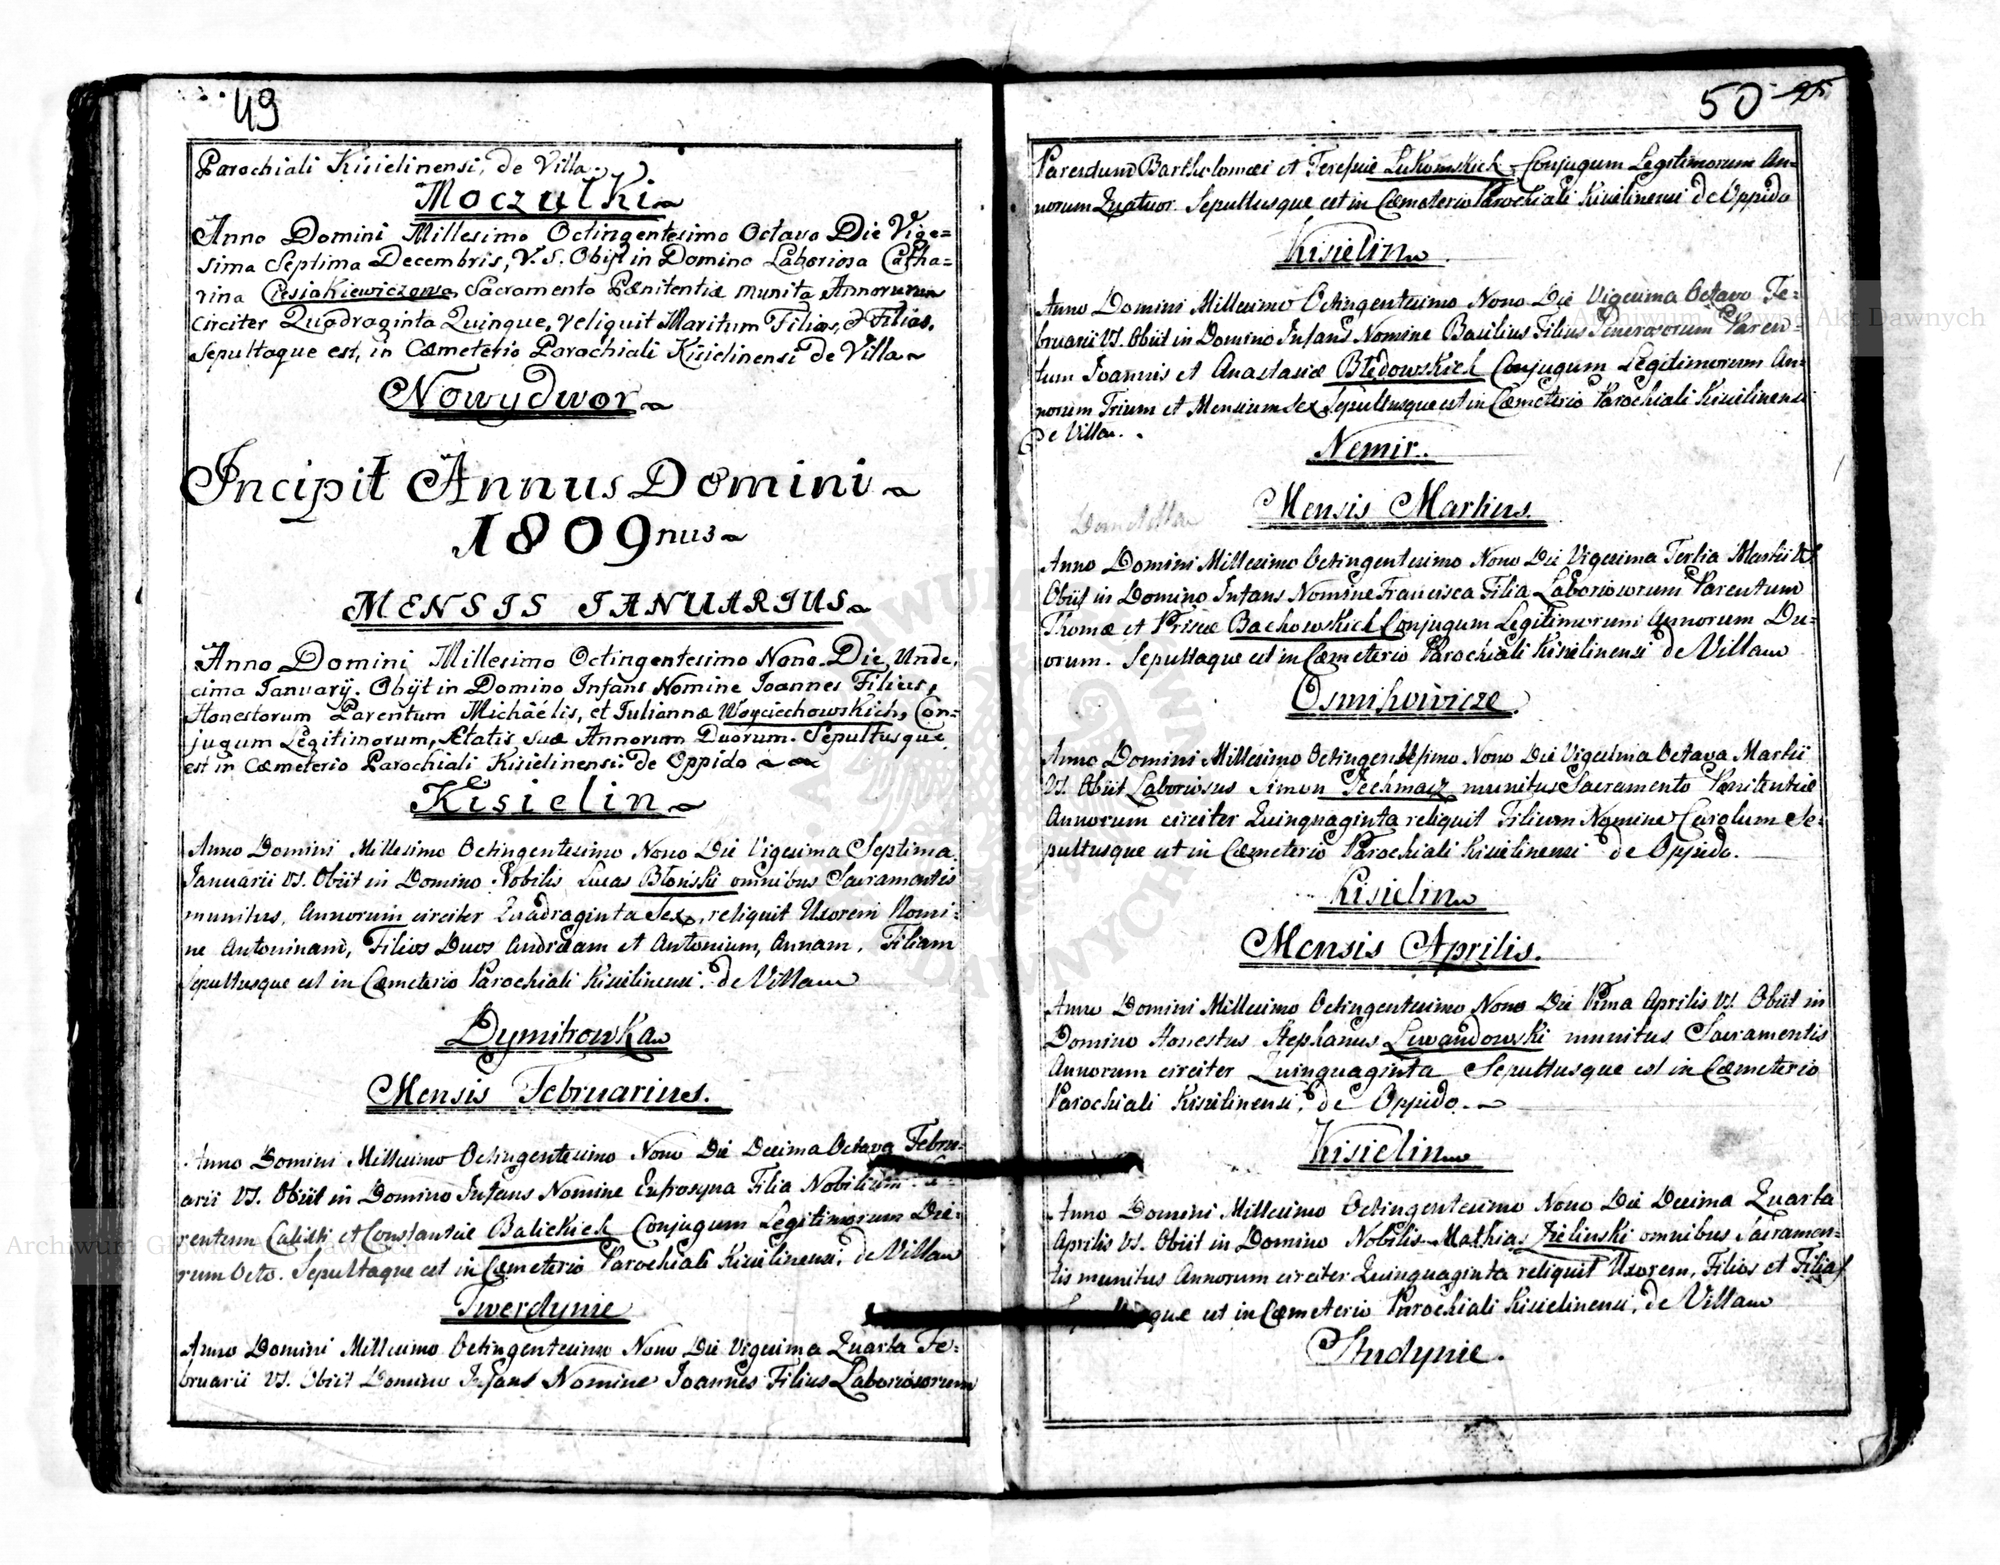 49
Parochiali Kisielinensi, de Villa
Moczulki
Anno Domini Millesimo Octingentesimo Octavo Die Vige=
sima Septima Decembris, V. S. Obijt in Domino Laboriosa Catha=
rina Ciesiakiewiczowa, Sacramento Pænitentiæ munita Annorum
Circiter Quadraginta Quinque, reliquit Maritum Filios, & Filias,
Sepultaque est, in Cæmeterio Parochiali Kisielinensi de Villa
Nowydwor
Incipit Annus Domini
1809nus
MENSIS IANUARIUS
Anno Domini Millesimo Octingentesimo Nono Die Unde,
cima Ianuarij. Obijt in Domino Infans Nomine Ioannes Filius,
Honestorum Parentum Michaélis, et Juliannæ Woyciechowskich, Con=
jugum Legitimorum, Ætatis suæ Annorum Duorum. Sepultusque
est in Cæmeterio Parochiali Kisielinensi: de Oppido
Kisielin
Anno Domini Millesimo Octingentesimo Nono Die Vigesima Septima
Januarii VS. Obiit in Domino Nobilis Lucas Błoński omnibus Sacramentis
munitus, Annorum circiter Quadraginta Sex, reliquit Uxorem Nomi=
ne Antoninam, Filios Duos Andream et Antonium, Annam, Filiam
Sepultusque est in Cæmeterio Parochiali Kisielinensi. de Villa
Dymitrowka
Mensis Februarius.
Anno Domini Millesimo Octingentesimo Nono Die Decima Octava Febru=
arii VS. Obiit in Domino Infans Nomine Eufrosyna Filia Nobilium
rentum Calisti et Constantiæ Balickich Conjugum Legitimorum Die=
rum Octo. Sepultaque est in Cæmeterio Parochiali Kisielinensi, de Villa
Twerdynie
Anno Domini Millesimo Octingentesimo Nono Die Vigesima Quarta Fe=
bruarii VS. Obiit Domino Infans Nomine Joannes Filius Laboriosorum
50 25
Parentum Bartholomæi et Teresiæ Lukomskich Conjugum Legitimorum An=
norum Quatuor Sepultusque est in Cæmeterio Parochiali Kisielinensi de Oppido
Kisielin
Anno Domini Millesimo Octingentesimo Nono Die Vigesima Octavo Fe=
bruarii VS. Obiit in Domino Infans Nomine Basilius Filius Generosorum Paren=
tum Joannis et Anastasiæ Błędowskich Conjugum Legitimorum An=
norum Trium et Mensium Sex Sepultusque est in Cæmeterio Parochiali Kisielinensi
de Villa.
Nemir.
Mensis Martius.
Anno Domini Millesimo Octingentesimo Nono Die Vigesima Tertia Martii VS
Obiit in Domino Infans Nomine Francisca Filia Laboriosorum Parentum
Thomæ et Prisiæ Bachowskich Conjugum Legitimorum Annorum Du=
orum. Sepultaque est in Cæmeterio Parochiali Kisielinensi de Villa
Anno Domini Millesimo Octingentesimo Nono Die Vigesima Octava Martii
VS. Obiit Laboriosus Simon Techmacz munitus Sacramento Pænitentiæ
Annorum circiter Quinquaginta reliquit Filium Nomine Carolum Se=
pultusque est in Cæmeterio Parochiali Kisielinensi de Oppido.
Kisielin
Mensis Aprilis.
Anno Domini Millesimo Octingentesimo Nono Die Prima Aprilis VS. Obiit in
Domino Honestus Stephanus Lewandowski munitus Sacramentis
Annorum circiter Quinquaginta Sepultusque est in Cæmeterio
Parochiali Kisielinensi, de Oppido.
Kisielin
Anno Domini Millesimo Octingentesimo Nono Die Decima Quarta
Aprilis VS. Obiit in Domino Nobilis Mathias Zielinski omnibus Sacramen=
tis munitus Annorum circiter Quinquaginta reliquit Uxorem, Filios et Filias
que est in Cæmeterio Parochiali Kisielinensi, de Villa
Studynie.